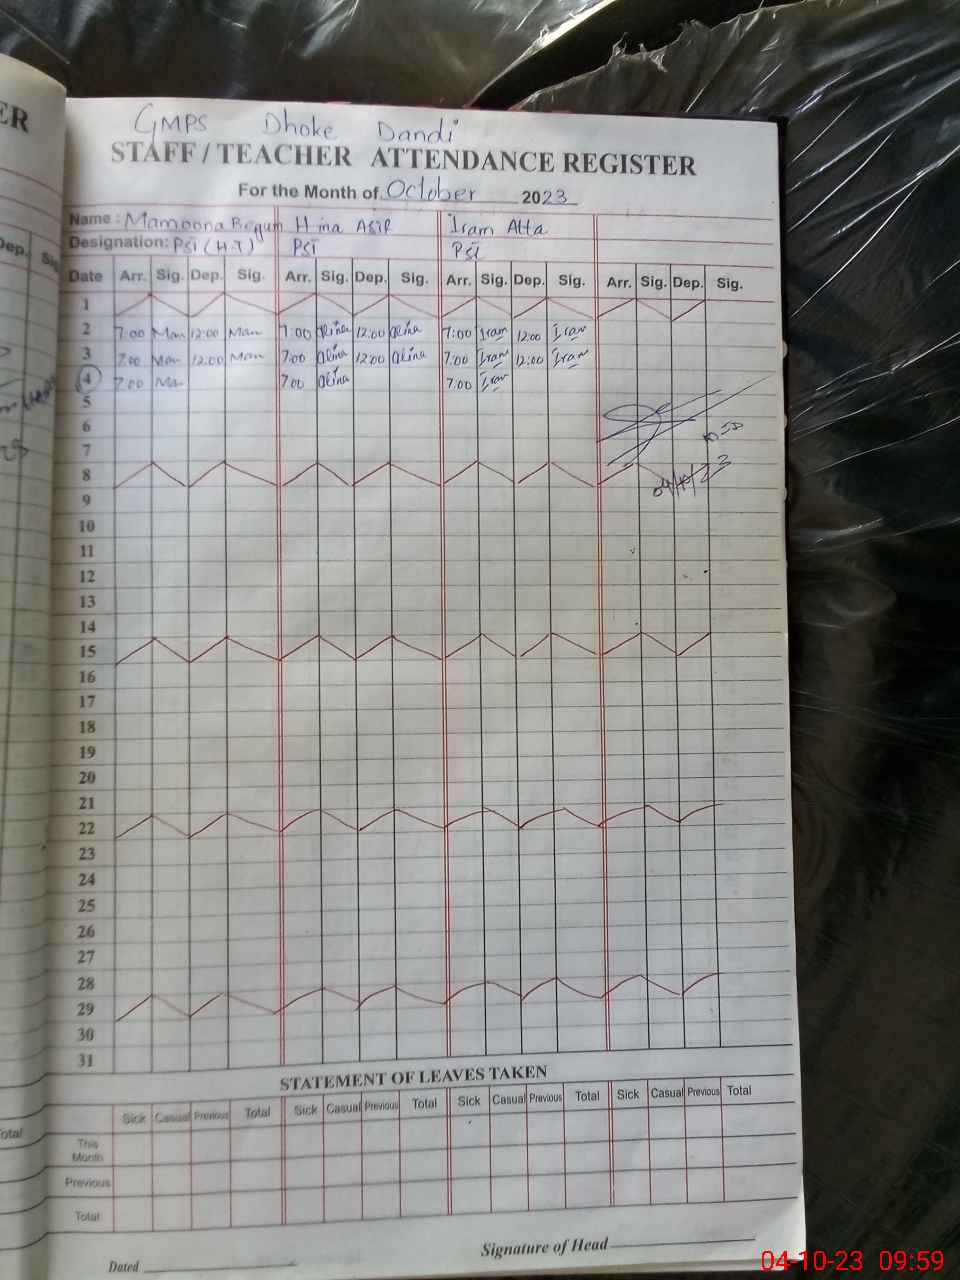 ER
GMPS Dhoke Dandi
STAFF / TEACHER ATTENDANCE REGISTER
For the Month of October 2023
Name : Mamoona Begum Hina Asir Iram Atta
Designation: PSI (H.T) PSI PSI
Dep. Sig
Date Arr. Sig. Dep. Sig. Arr. Sig. Dep. Sig. Arr. Sig. Dep. Sig. Arr. Sig. Dep. Sig.
1
2 7:00 Mam 12:00 Mam 7:00 12:00 7:00 Iram 12:00 Iram
3 7:00 Mam 12:00 Mam 7:00 12:00 7:00 Iram 12:00 Iram
4 7:00 Ma 7:00 7:00 Iram
5
6
7
8 04/10/23
9
10
11
12
13
14
15
16
17
18
19
20
21
22
23
24
25
26
27
28
29
30
31
STATEMENT OF LEAVES TAKEN
Sick Casual Previous Total Sick Casual Previous Total Sick Casual Previous Total Sick Casual Previous Total
otal
This
Month
Previous
Total
Dated Signature of Head
04-10-23 09:59